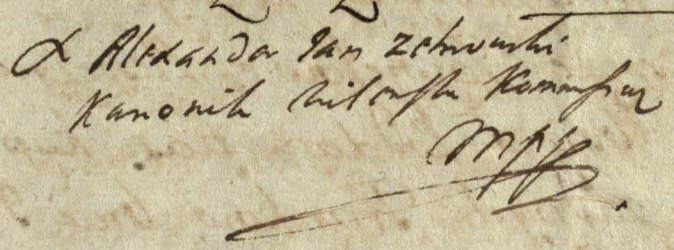 X Alexander Jan Zebrowski
Kanonik Wilenski Kommissarz
mpp